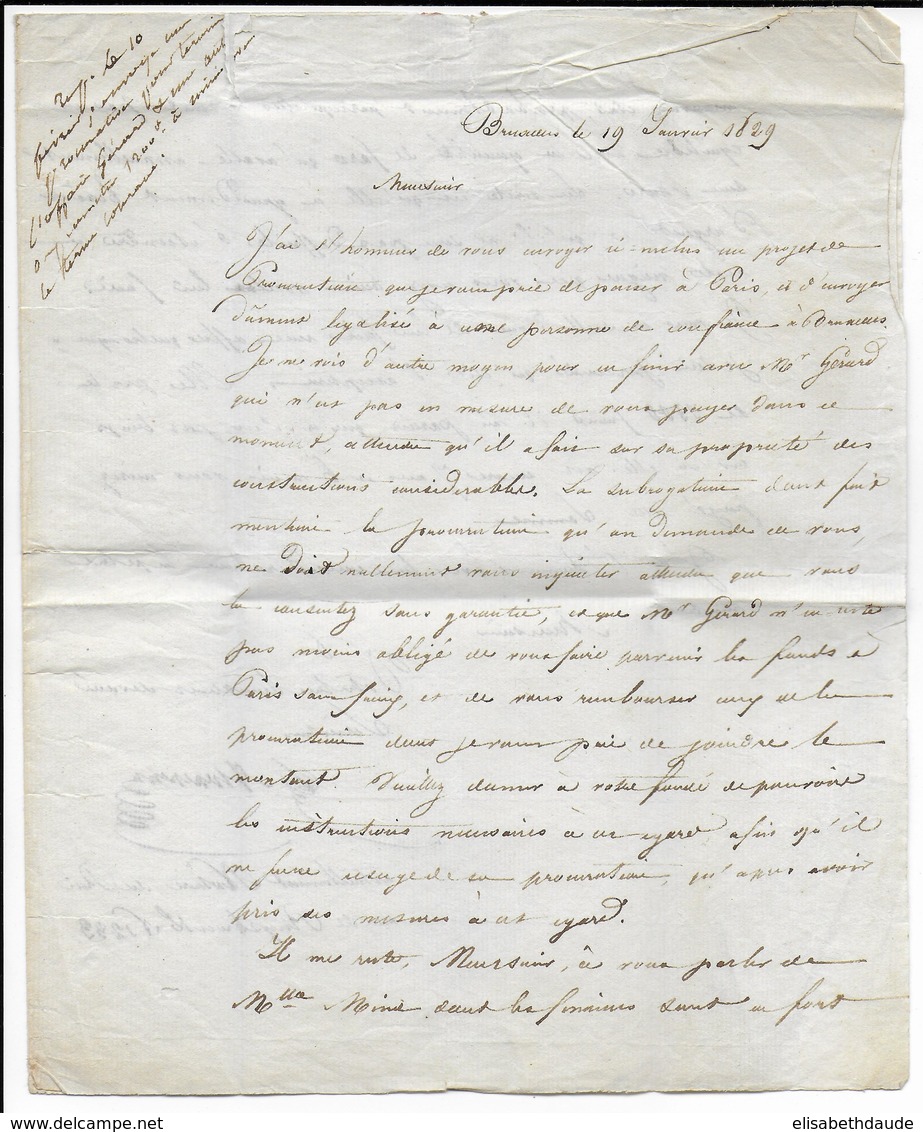 Rép. le 10
février, envoyé une
procuration pour terminer
l'affaire Gérard &
le terme courant.
Bruxelles le 19 Janvier 1829
Monsieur
J'ai l'honneur de vous envoyer ci-inclus un projet de
Procuration que je vous prie de passer à Paris, et d'envoyer
dûment legalisé à une personne de confiance à Bruxelles.
Je ne vois d'autre moyen pour en finir avec Mr Gérard
qui n'est pas en mesure de vous payer dans ce
moment, attendu qu'il a fait sur sa propriété des
constructions considerables. La subrogation dont fait
mention la procuration qu'on demande de vous,
ne doit nullement vous inquieter attendu que vous
la consentez sans garantie, et que Mr Gérard n'en reste
pas moins obligé de vous faire parvenir les fonds à
Paris sans frais, et de vous rembourser ceux de la
procuration dont je vous prie de joindre le
montant. Veuillez donner à votre fondé de pouvoirs
les instructions necessaires à cet egard afin qu'il
ne fasse usage de sa procuration, qu'après avoir
pris ses mesures à cet egard.
Il me reste, Monsieur, à vous parler de
Mlle Miné dont les finances sont en fort
elisabethdaude